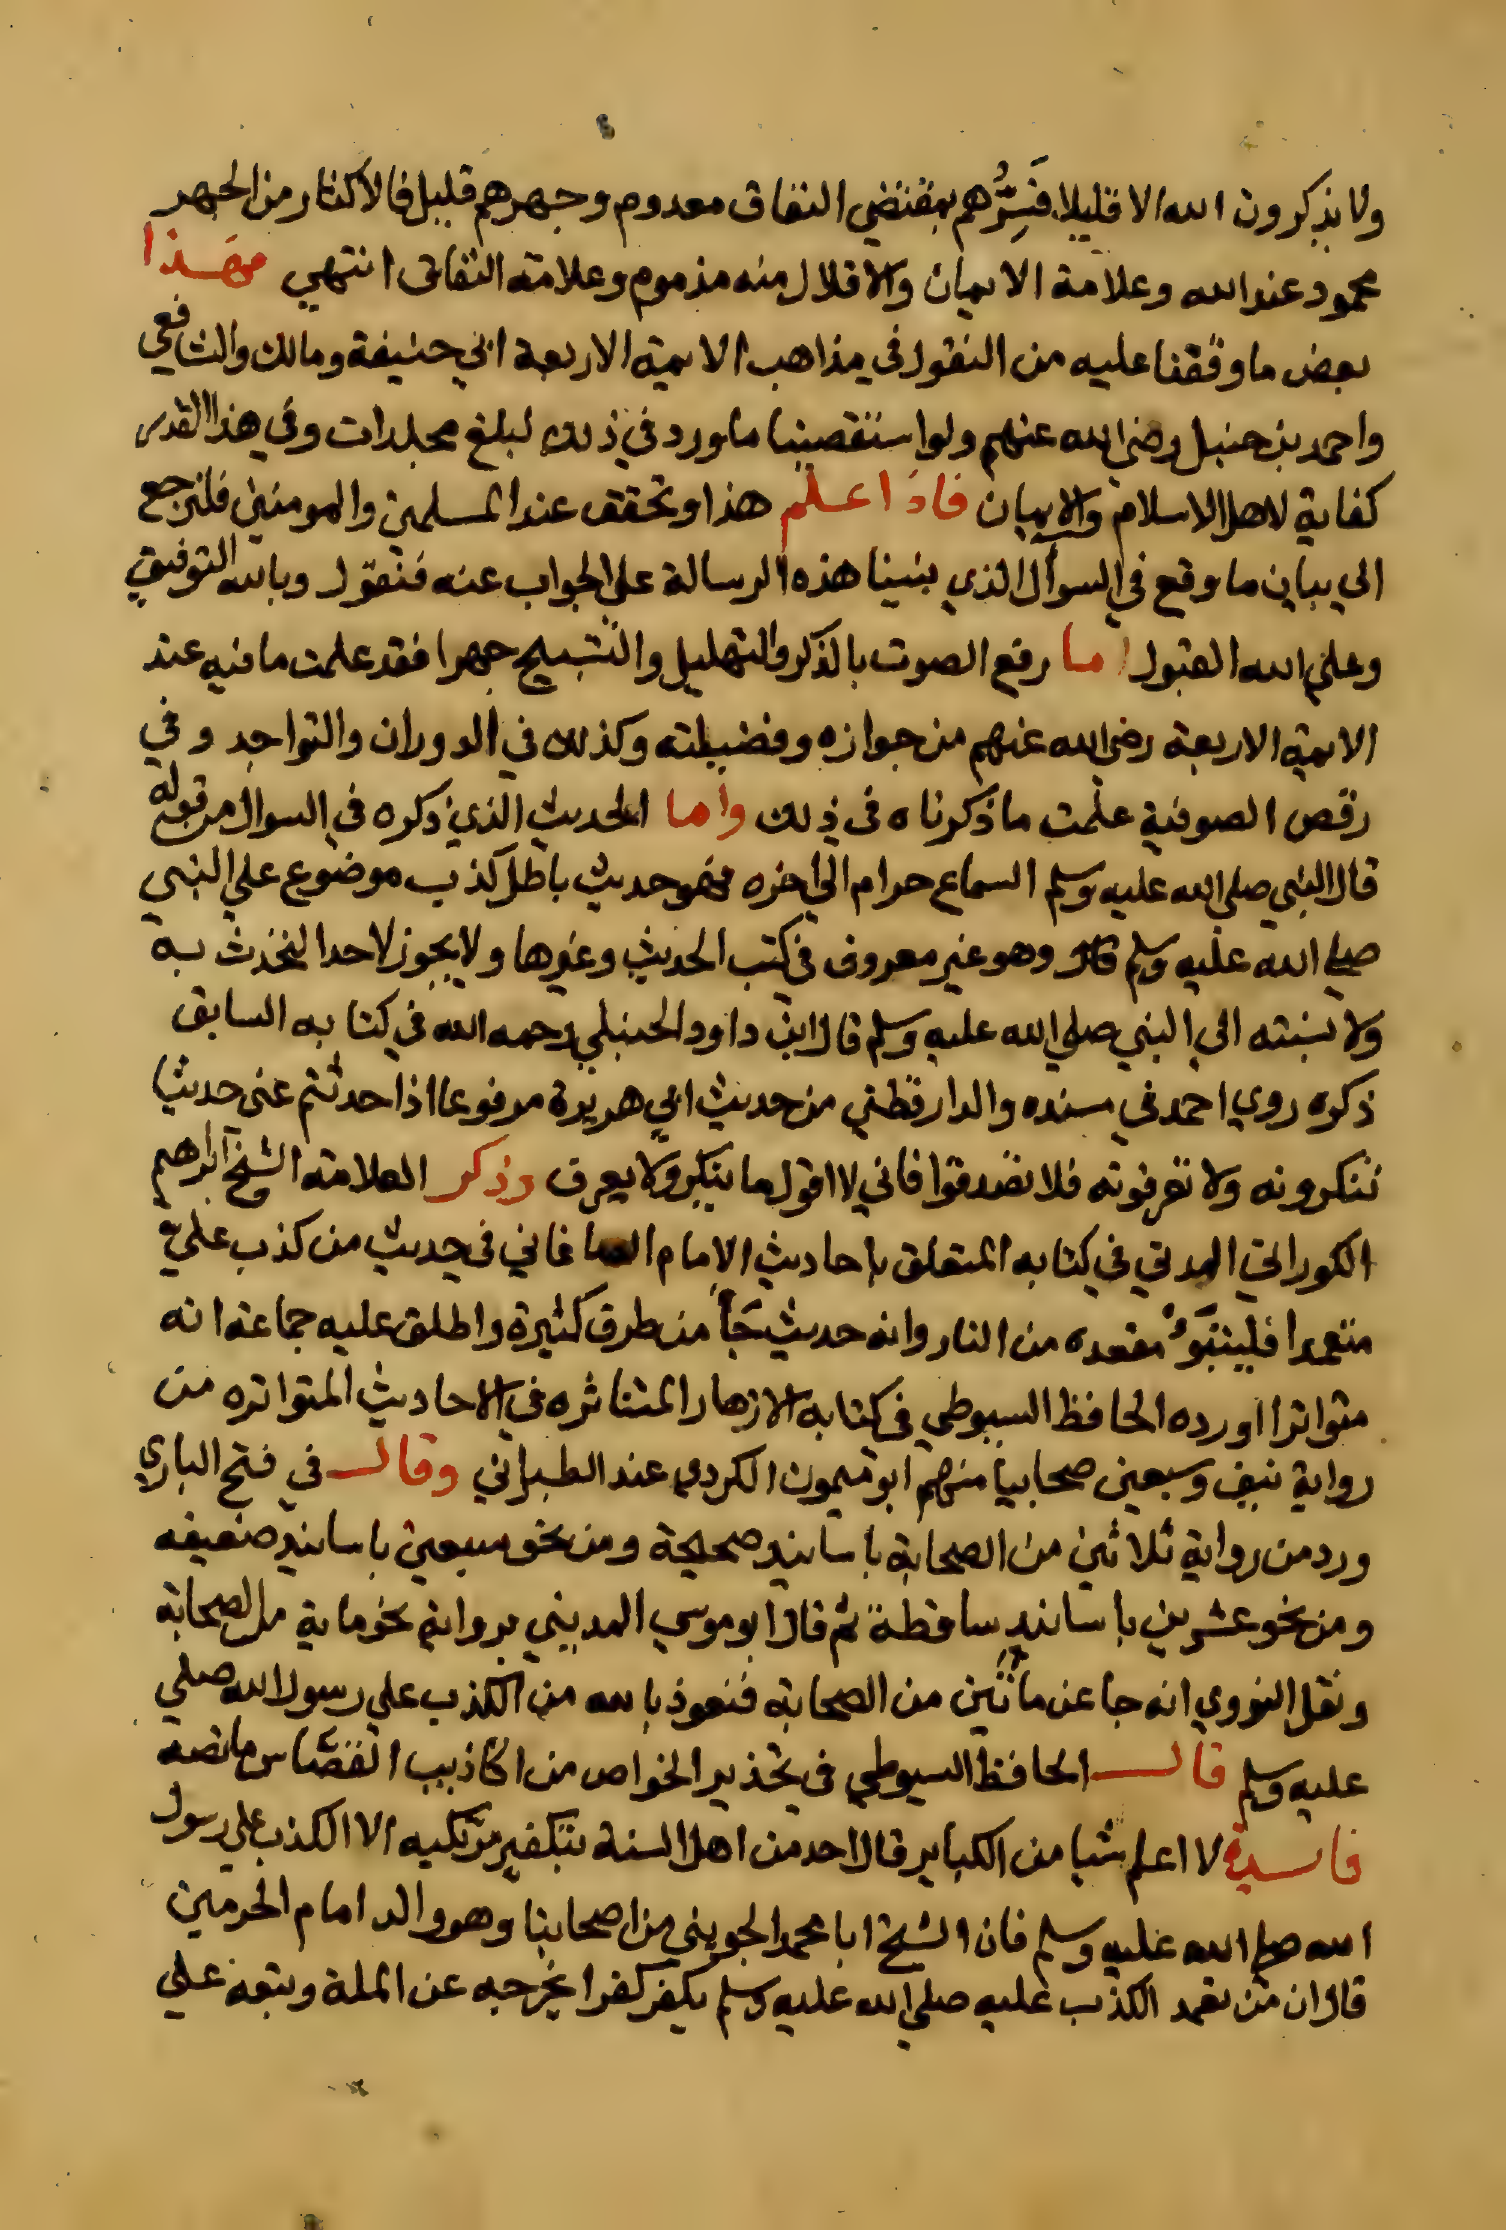 ولا يذكرون الله الا قليلا فَسِرُّهم بمقتضي النفاق معدوم وجهرهم قليل فالاكثار من الجهر
محمود عند الله وعلامة الايمان والاقلال منه مذموم وعلامة النفاق انتهي فهذا
بعض ما وقفنا عليه من النقول في مذاهب الايمة الاربعة ابي حنيفة ومالك والشافعي
واحمد بن حنبل رضي الله عنهم ولو استقصينا ما ورد في ذلك لبلغ مجلدات وفي هذا القدر
كفاية لاهل الاسلام والايمان فاذا علم هذا وتحقق عند المسلمين والمومنين فلنرجع
الي بيان ما وقع في السوأل الذي بنينا هذه الرسالة علي الجواب عنه فنقول وبالله التوفيق
وعلي الله القبول اما رفع الصوت بالذكر والتهليل والتسبيح جهرا فقد علمت ما فيه عند
الايمة الاربعة رضي الله عنهم من جوازه وفضيلته وكذلك في الدوران والتواجد وفي
رقص الصوفية علمت ما ذكرناه في ذلك واما الحديث الذي ذكره في السوال من قوله
قال النبي صلي الله عليه وسلم السماع حرام الي اخره فهو حديث باطل كذب موضوع علي النبي
صلي الله عليه وسلم وهو غير معروف في كتب الحديث وغيرها ولا يجوز لاحد التحدث به
ولا نسبته الي النبي صلي الله عليه وسلم قال ابن داود الحنبلي رحمه الله في كتابه السابق
ذكره روي احمد في مسنده والدارقطني من حديث ابي هريرة مرفوعا اذا حدثتم عني حديثا
تنكرونه ولا تعرفونه فلا تصدقوا فاني لا اقول ما ينكر ولا يعرف وذكر العلامة الشيخ ابراهيم
الكوراني المدني في كتابه المتعلق باحاديث الامام الصاغاني في حديث من كذب علي
متعمدا فليتبَوّءُ مقعده من النار وانه حديث جَآ من طرق كثيرة واطلق عليه جماعة انه
متواترا اورده الحافظ السيوطي في كتابه الازهار المتناثره في الاحاديث المتواتره من
رواية نيف وسبعين صحابيا منهم ابو ميمون الكردي عند الطبراني وقال في فتح الباري
ورد من رواية ثلاثين من الصحابة باسانيد صحيحة ومن نحو سبعين باسانيد ضعيفه
ومن نحو عشرين باسانيد ساقطة ثم قال ابو موسي المديني برواية نحو ماية من الصحابة
ونقل النووي انه جا عن مائتين من الصحابة فنعوذ بالله من الكذب علي رسول الله صلي
عليه وسلم قال الحافظ السيوطي في تحذير الخواص من اكاذيب القصّاص ما نصه
فايدة لا اعلم شيا من الكباير قال احد من اهل السنة بتكفير مرتكبه الا الكذب علي رسول
الله صلي الله عليه وسلم فان الشيخ ابا محمد الجويني من اصحابنا وهو والد امام الحرمين
قال ان من تعمد الكذب عليه صلي الله عليه وسلم يكفر كفرا يخرجه عن الملة وتبعه علي